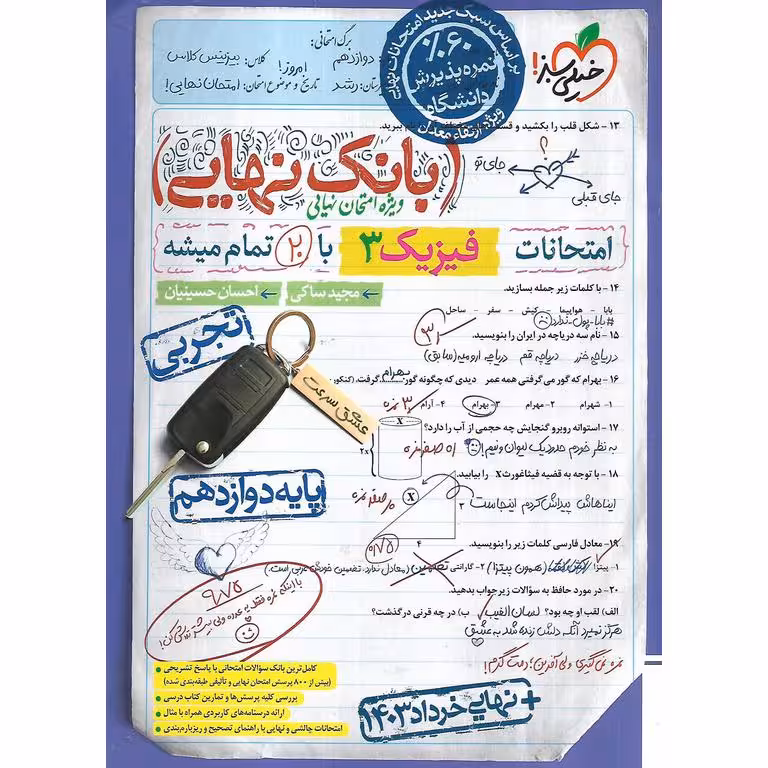 خیلی سبز!
بر اساس سبک جدید امتحانات نهایی
۶۰٪
ثمره پذیرش
دانشگاه
ویژه ارتقاء معدل
برگ امتحانی:
دوازدهم
کلاس: بیزینس کلاس
امروز!
رشد
تاریخ و موضوع امتحان: امتحان نهایی!
۱۳ - شکل قلب را بکشید و
نام ببرید.
؟
جای تو
جای قبلی
(بانک نهایی)
ویژه امتحان نهایی
امتحانات فیزیک ۳ با ۲۰ تمام میشه
۱۴ - با کلمات زیر جمله بسازید.
مجید ساکی
احسان حسینیان
بابا - هواپیما - کیش - سفر - ساحل
#بابا-پول-ندارد
تجربی
۱۵ - نام سه دریاچه در ایران را بنویسید.
دریاچه خزر دریاچه قم دریاچه ارومیه (سابق)
۱۶ - بهرام که گور می‌گرفتی همه عمر دیدی که چگونه گور بهرام گرفت. (کنکور
۱- شهرام ۲- مهرام ۳- بهرام ۴- آرام
۳ نمره
عشق سرعت
۱۷ - استوانه روبرو گنجایش چه حجمی از آب را دارد؟
به نظر خودم حدود یک لیوان و نیم!
X
۲x
۱۸ - با توجه به قضیه فیثاغورث X را بیابید.
ایناهاش پیداش کردم اینجاست
X
۳
۴
پایه دوازدهم
۱۹- معادل فارسی کلمات زیر را بنویسید.
۱- پیتزا (همون پیتزا) ۲- گارانتی تضمین (معادل ندارد. تضمین خودش عربی است.)
۲۰- در مورد حافظ به سؤالات زیر جواب بدهید.
الف) لقب او چه بود؟ لسان الغیب ب) در چه قرنی در گذشت؟
هرگز نمیرد آنکه دلش زنده شد به عشق
نمره نمی‌گیری ولی آفرین؛ دمت گرم!
۹٫۷۵
کامل‌ترین بانک سؤالات امتحانی با پاسخ تشریحی
(بیش از ۸۰۰ پرسش امتحان نهایی و تألیفی طبقه‌بندی شده)
بررسی کلیه پرسش‌ها و تمارین کتاب درسی
ارائه درسنامه‌های کاربردی همراه با مثال
امتحانات چالشی و نهایی با راهنمای تصحیح و ریزبارم‌بندی
+ نهایی خرداد ۱۴۰۳